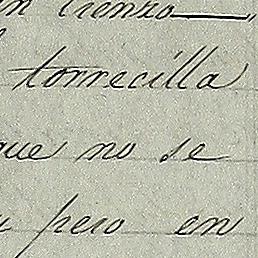 lienzo
torrecilla
que no se
pero en